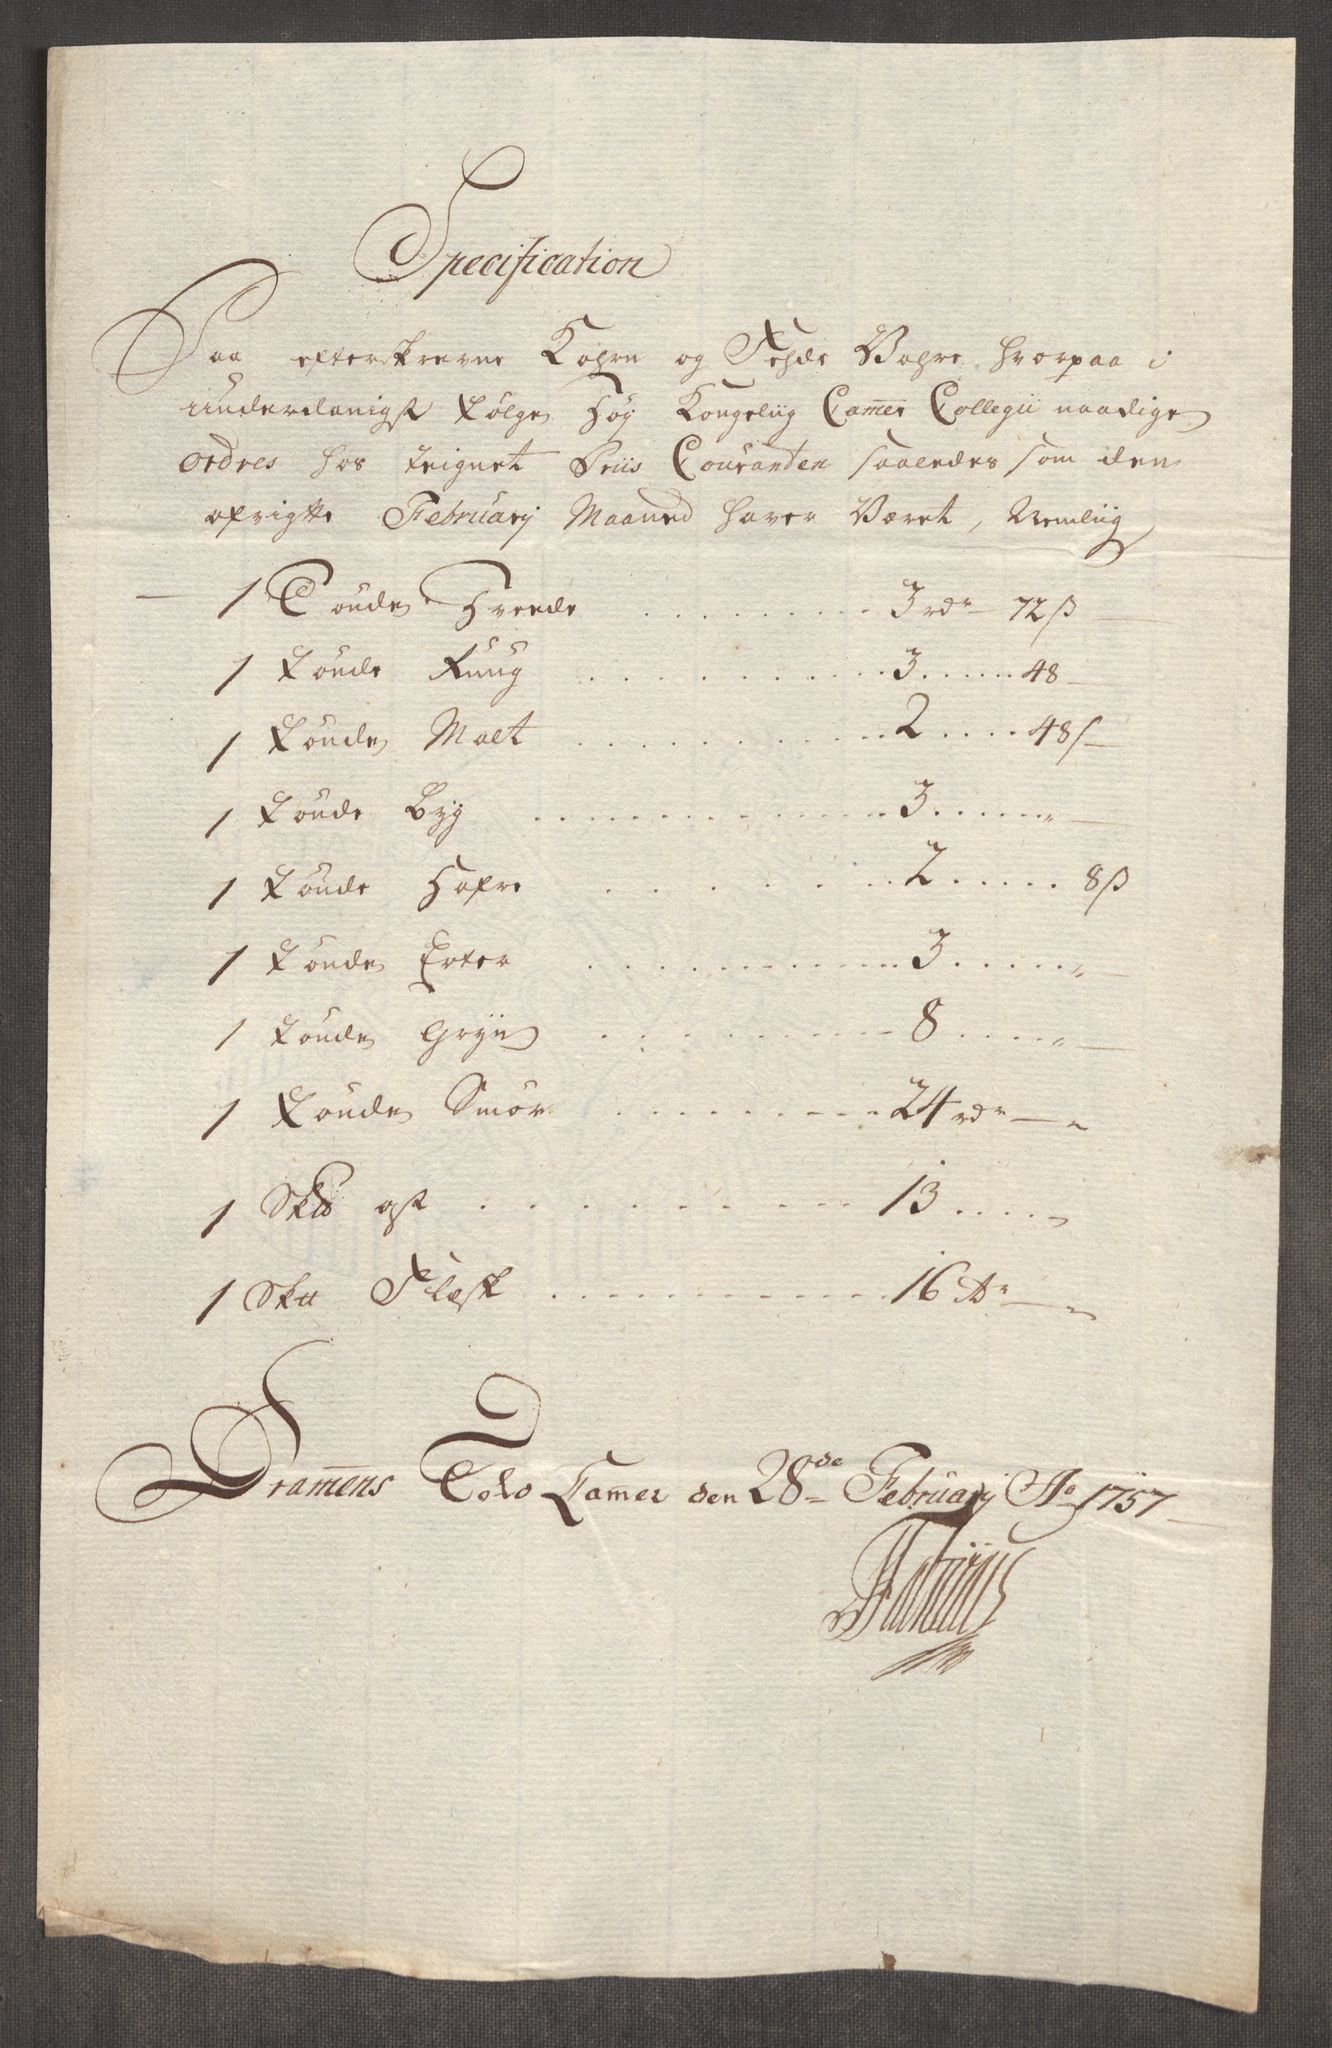 Specification
Paa efterskrevne Kohrn og Fehde Vahre, hvorpaa i
underdanigst følge Høy Kongeliig Camer Collegii naadige
ordres hos teignet Priis Couranden saaledes som den
afvigtte February Maaned haver Været, Nemliig
1 Tønde Hveede . . . . . . . . 3 rdr 72 ß
1 tønde Ruug . . . . . . . . 3 . . . . . 48
1 tønde Malt . . . . . . . . 2 . . . . 48 ß
1 tønde Byg . . . . . . . . 3 . . . . . "
1 tønde Hafre . . . . . . . . 2 . . . . . 8 ß
1 tønde Erter . . . . . . . . 3 . . . . . "
1 tønde Gryn . . . . . . . . 8 . . . . . "
1 tønde Smør . . . . . . . . 24 rdr — "
1 Sk℔ ost . . . . . . . . 13 . . . . "
1 Sk℔ Flesk . . . . . . . . 16 dr — "
Dramens Told Camer den 28de February Ao 1757